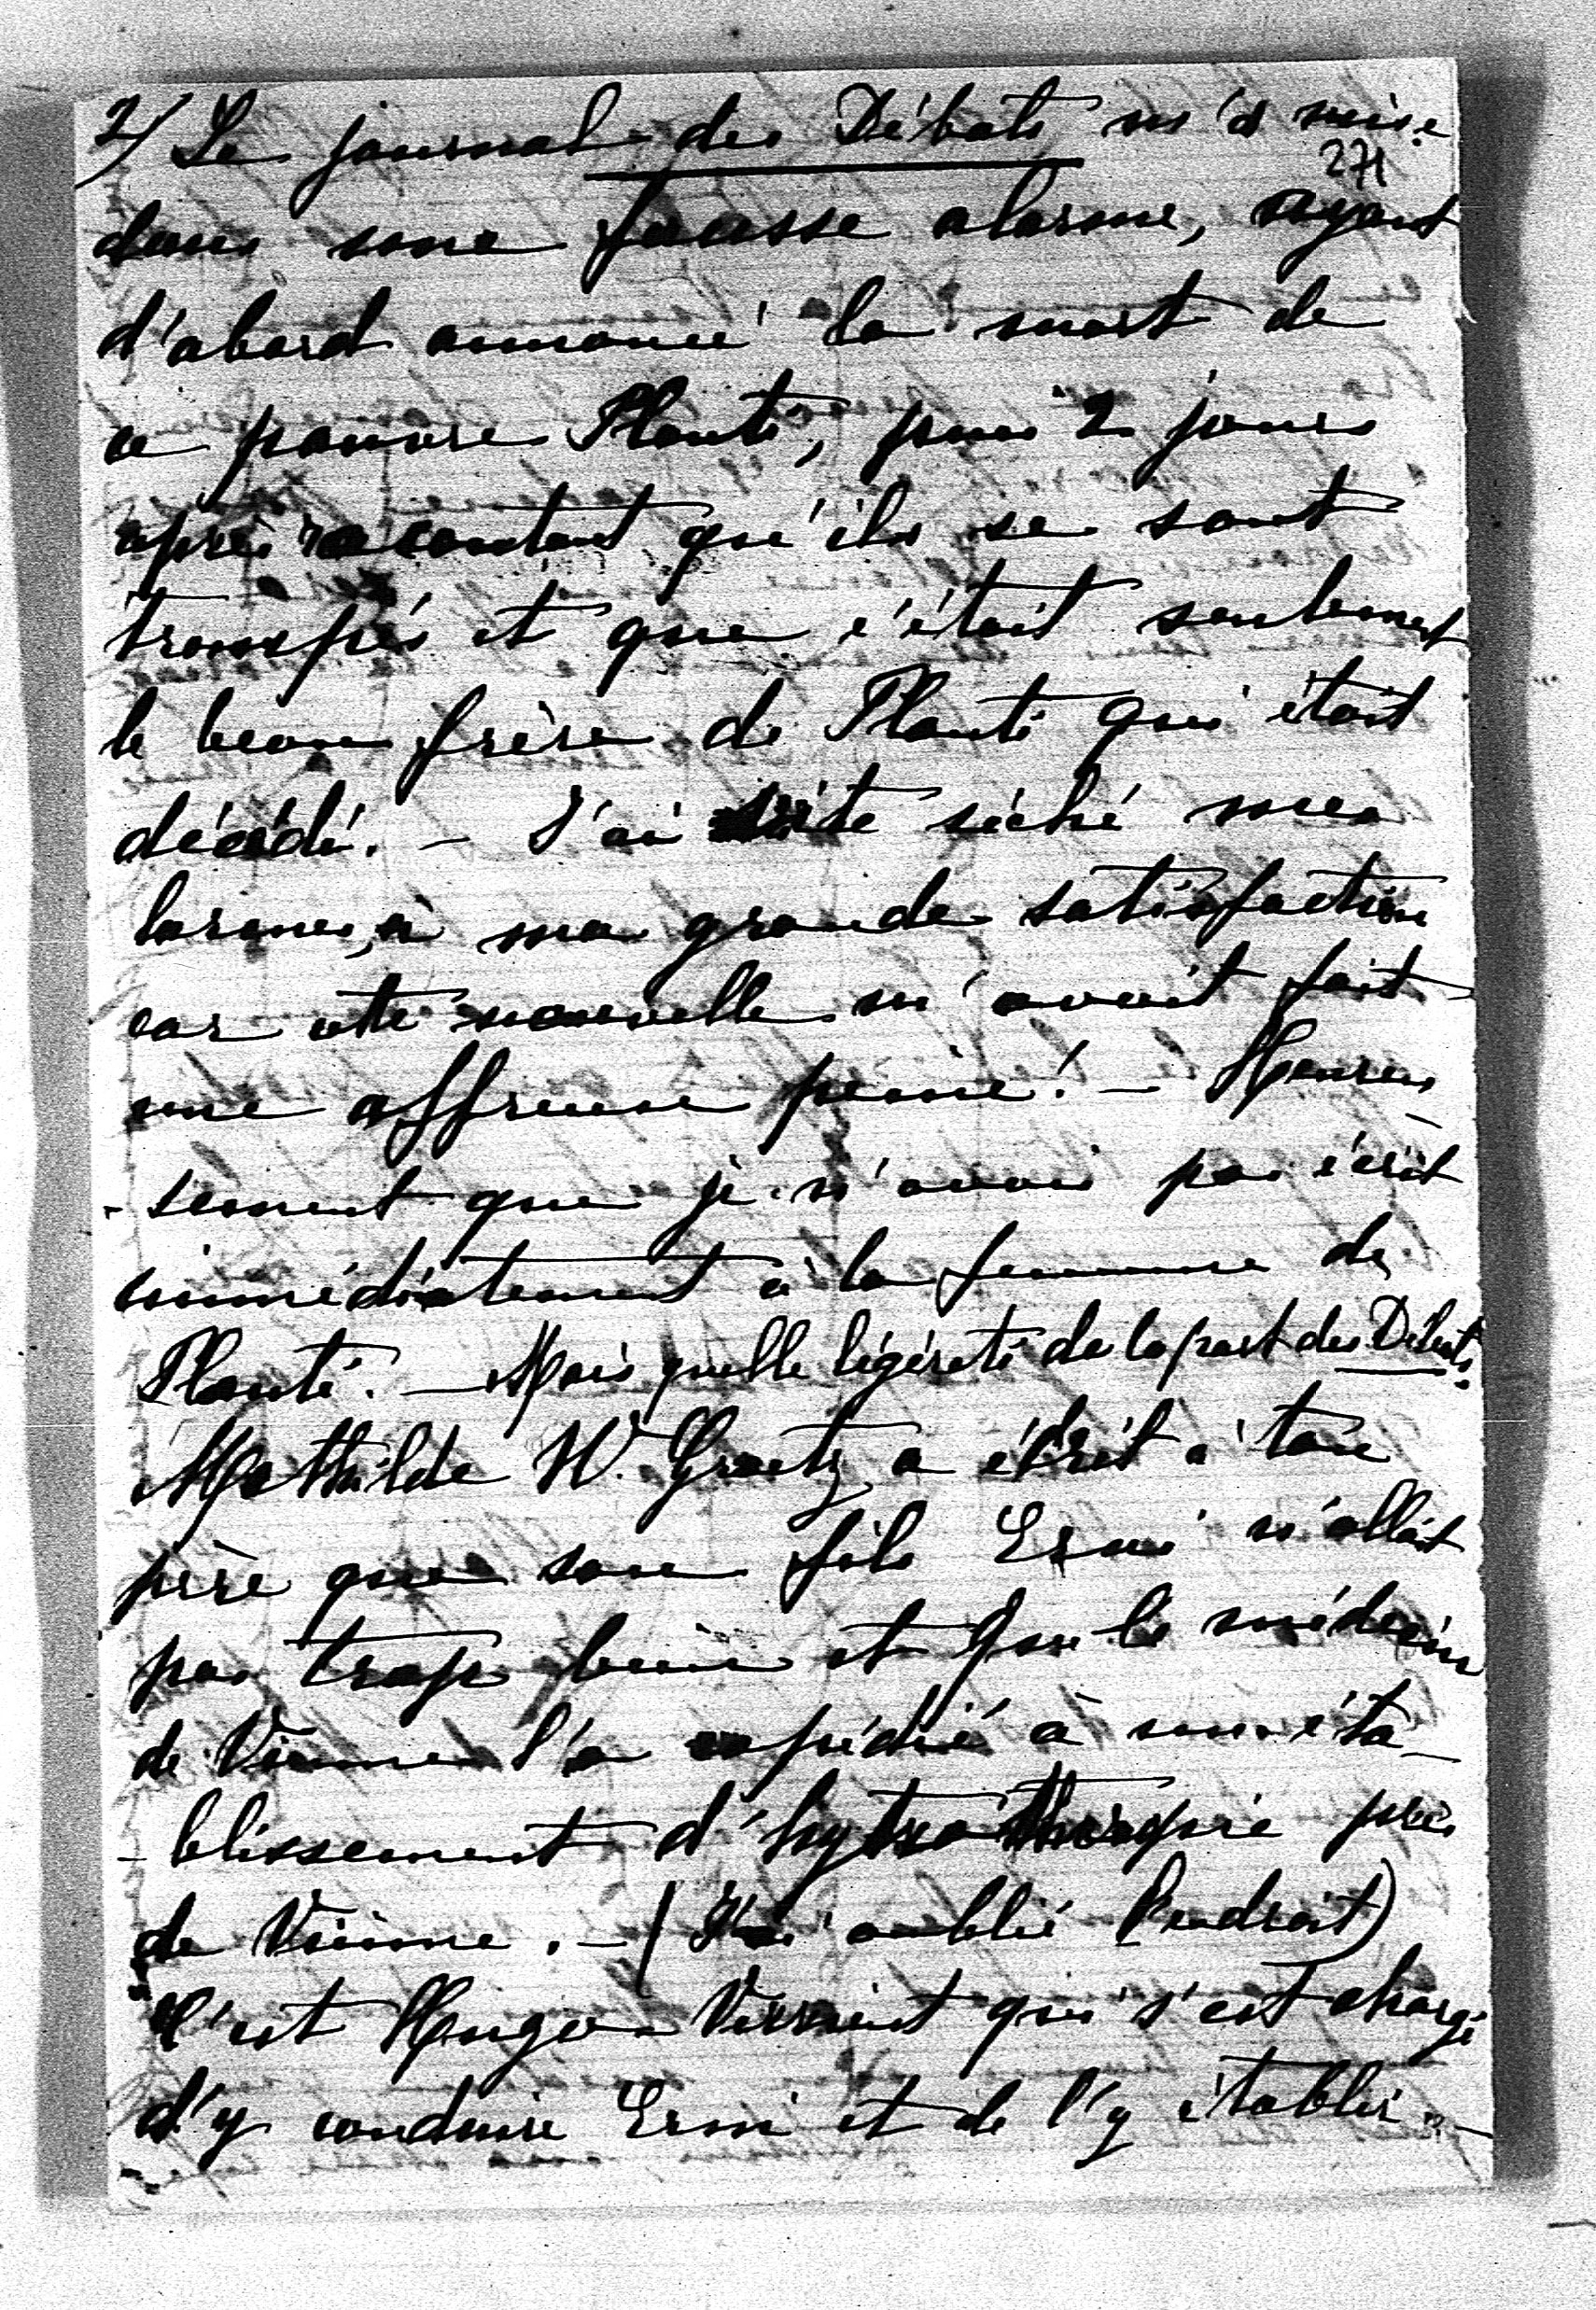 2/ Le journal des Débats m'a mise
271
dans une fausse alarme, ayant
d'abord annoncé la mort de
ce pauvre Planté, puis 2 jours
après racontant qu'ils se sont
trompés et que c'était seulement
le beau frère de Planté qui était
décédé. – J'ai vite séché mes
larmes, à ma grande satisfaction
car cette nouvelle m'avait fait
une affreuse peine! – Heureu-
-sement que je n'avais pas écrit
immédiatement à la femme de
Planté. – Mais quelle légèreté de la part des Débats.
Mathilde W. Graetz a écrit à ton
père que son fils Erni n'allait
pas trop bien et que le médecin
de Vienne l'a expédié à un éta-
-blissement d'hytrothérapie près
de Vienne. – (J'ai oublié l'endroit)
C'est Hugo qui s'est chargé
d'y conduire Erni et de l'y établir. –